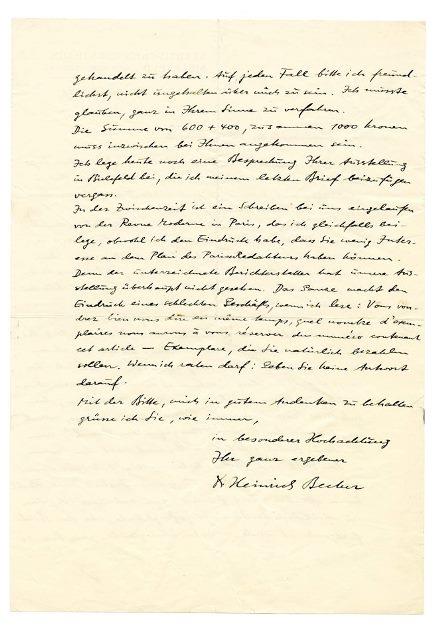 gehandelt zu haben. Auf jeden Fall bitte ich freund-
lichst, nicht ungehalten über mich zu sein. Ich müsste
glauben, ganz in Ihrem Sinne zu verfahren.
Die Summe von 600 + 400, zusammen 1000 Kronen
muss inzwischen bei Ihnen angekommen sein.
Ich lege heute noch eine Besprechung Ihrer Ausstellung
in Bielefeld bei, die ich meinem letzten Brief beizufügen
vergass.
In der Zwischenzeit ist ein Schreiben bei uns eingelaufen
von der Revue Moderne in Paris, das ich gleichfalls bei-
lege, obwohl ich den Eindruck habe, dass Sie wenig Inter-
esse an dem Plan des Pariser Redakteurs haben können.
Denn der unterzeichnete Berichterstatter hat unsere Aus-
stellung überhaupt nicht gesehen. Das Ganze macht den
Eindruck eines schlechten Geschäfts, wenn ich lese: Vous vou-
drez bien nous dire en même temps, quel nombre d'exem-
plaires nous aurons à vous réserver du numéro contenant
cet article — Exemplare, die Sie natürlich bezahlen
sollen. Wenn ich raten darf: Geben Sie keine Antwort
darauf.
Mit der Bitte, mich in gutem Andenken zu behalten
grüsse ich Sie, wie immer,
in besonderer Hochachtung
Ihr ganz ergebener
Dr Heinrich Becker